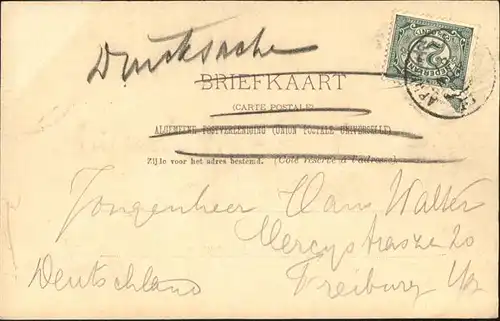 Drucksache
BRIEFKAART
(CARTE POSTALE)
ALGEMEENE POSTVEREENIGING (UNION POSTALE UNIVERSELLE)
Zijde voor het adres bestemd. (Côté réservé à l'adresse.)
Jongenheer Hans Walter
Mercystrasze 20
Deutschland
Freiburg